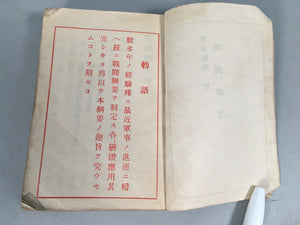 勅語
朕多年ノ經驗殊ニ最近軍事ノ進運ニ稽
ヘ玆ニ戰鬪綱要ヲ制定ス各〻研鑽應用其
宜シキヲ得以テ本綱要ノ趣旨ヲ完ウセ
ムコトヲ期セヨ